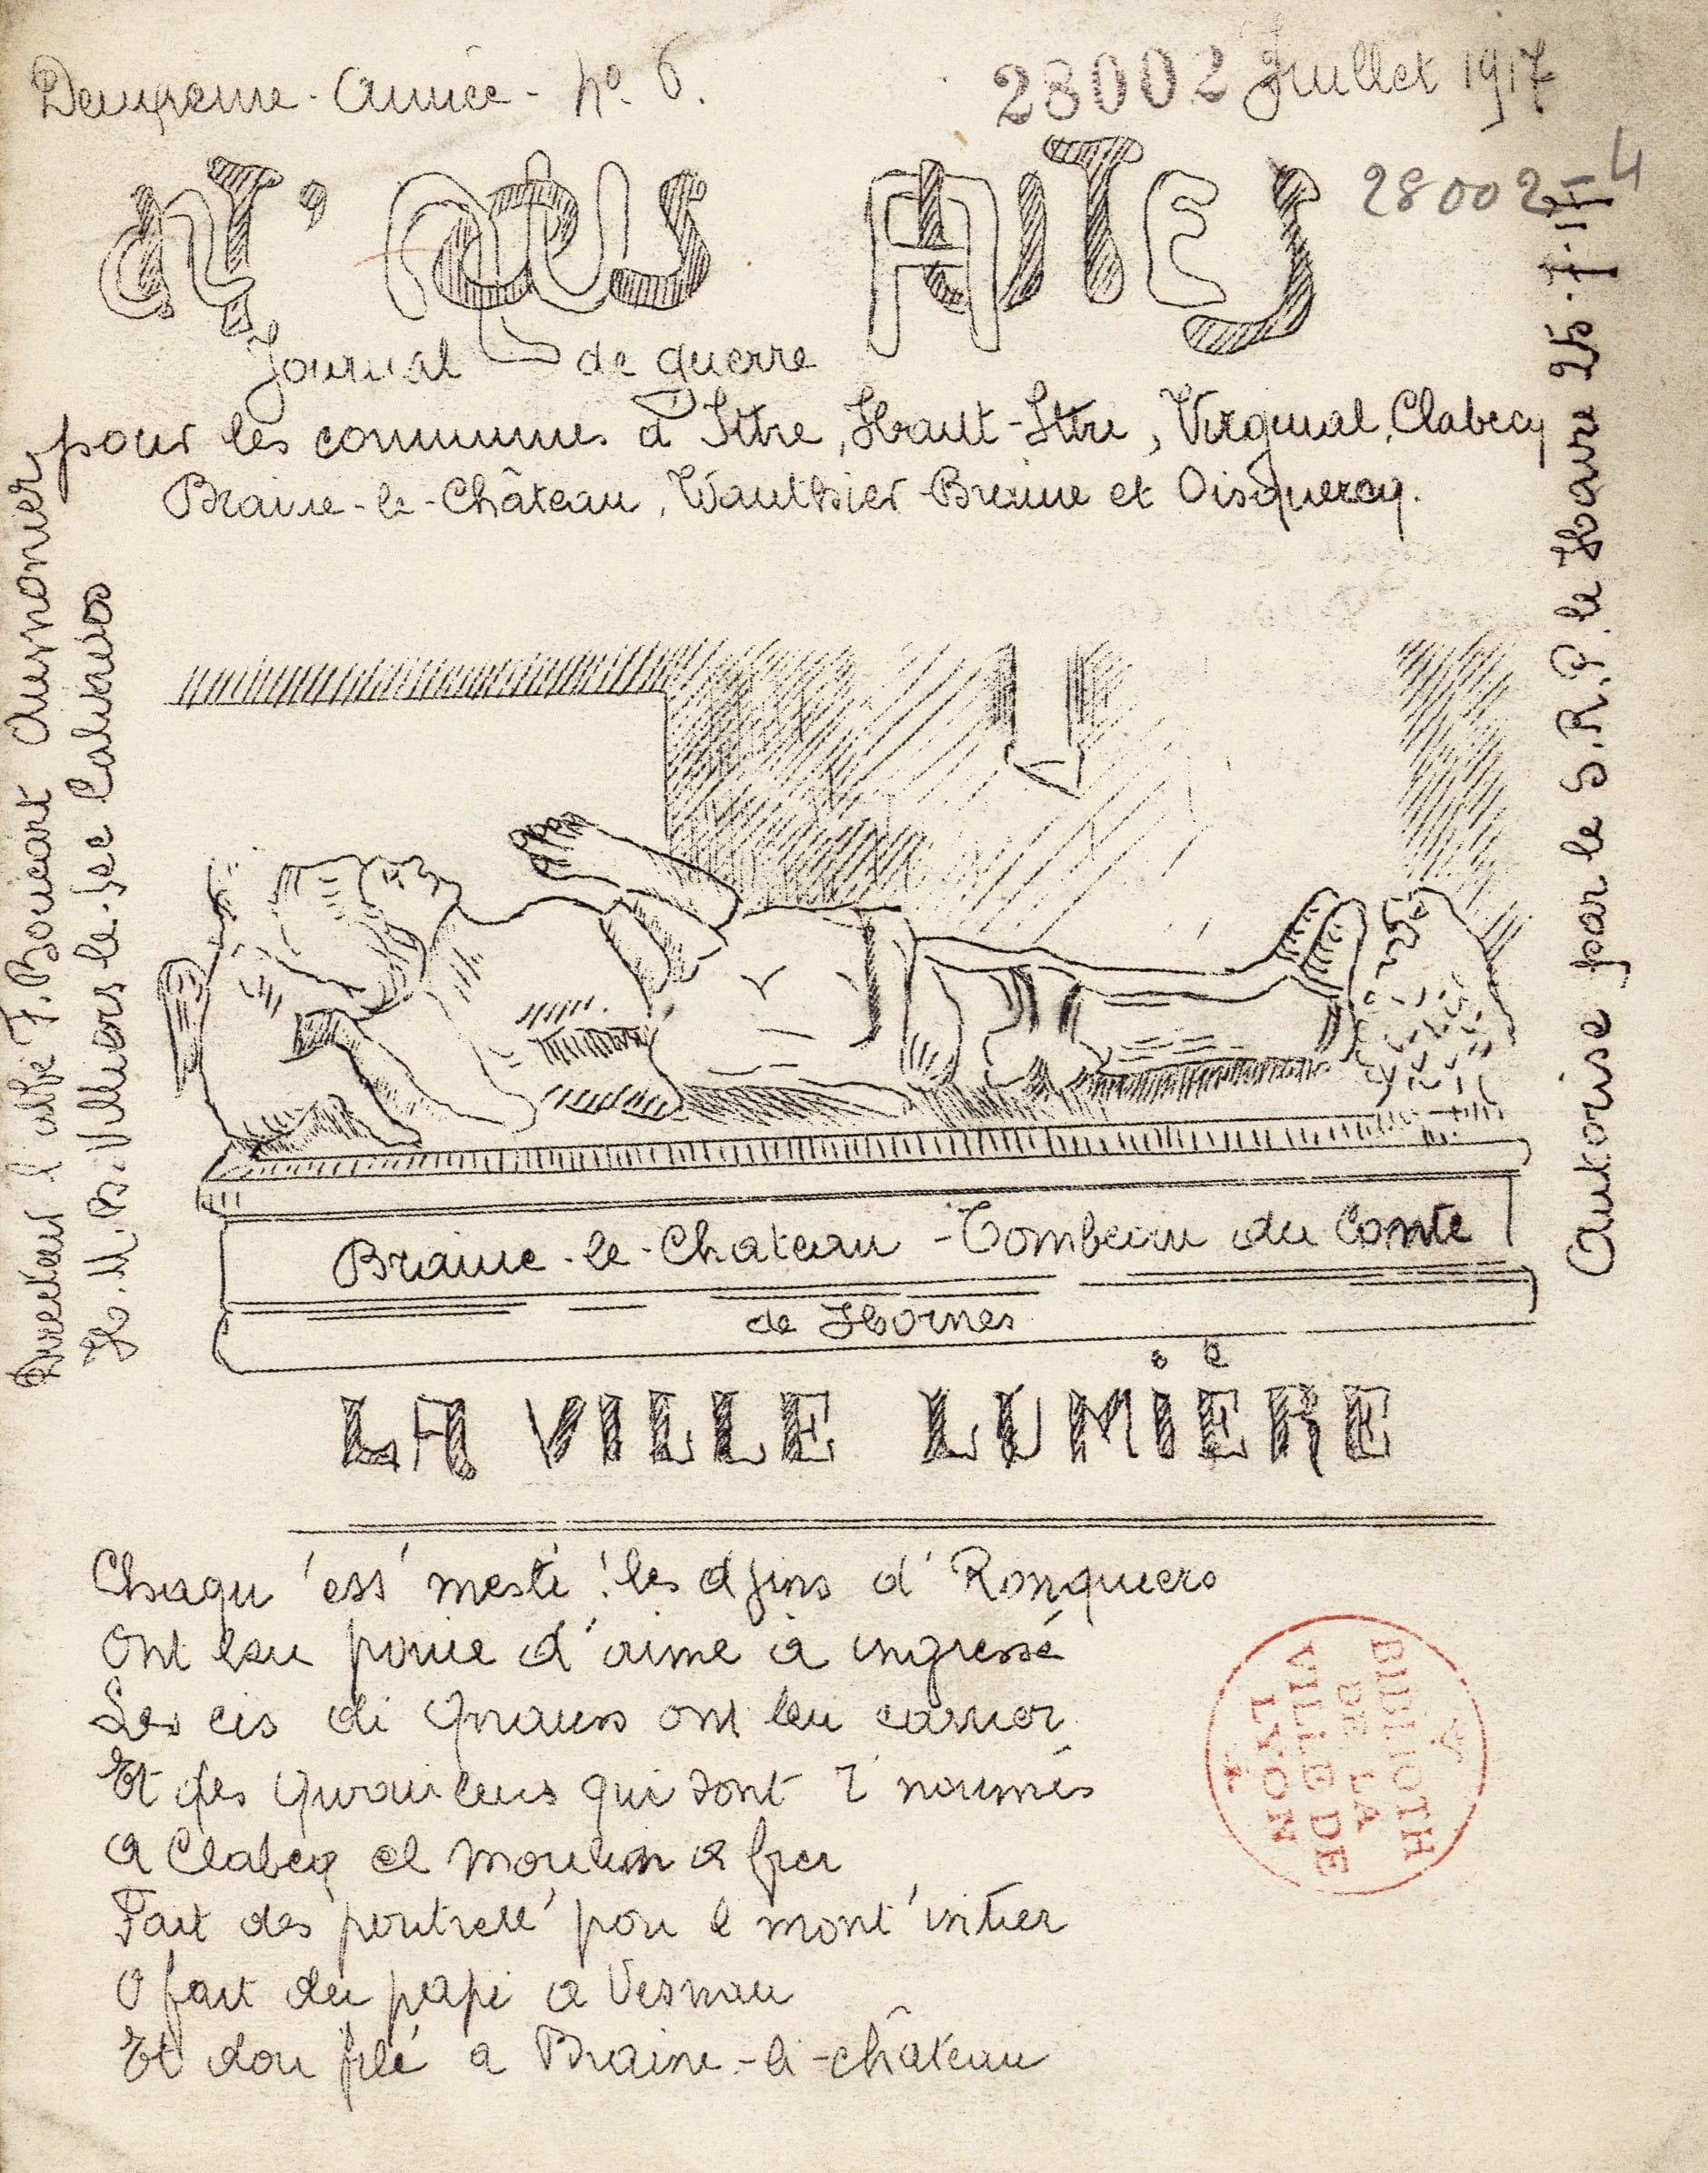 Deuxième - Année - No. 6.
28002 Juillet 1917
28002-4
Journal de guerre
pour les communes d'Ittre, Haut-Ittre, Virginal, Clabecq
Braine-le-Château, Wauthier-Braine et Oisquercq.
Directeur l'abbé F. Boucart Aumonier
H.M.B. Villiers le-Sec Calvados
Autorisé par le S.R.P. le Havre 25-7-17
Braine-le-Chateau - Tombeau du Comte
de Hornes
LA VILLE LUMIÈRE
Chaqu' ess' mesti! les djins d' Ronquiers
Ont leu d'aime à
Les cis di ont leu
Et des qui sont r'noumés
A Clabecq el moulin a fier
Fait des poutrell' pou l'
O fait du papi a Vesnau
Et dou filé a Braine-li-château
BIBLIOTH
DE LA
VILLE DE
LYON